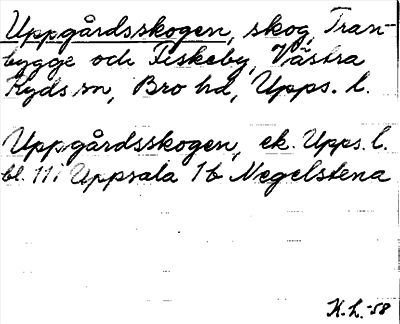 Uppgårdsskogen, skog, Tran-
bygge och Fiskeby, Västra
Ryds sn, Bro hd, Upps. l.
Uppgårdsskogen, ek. Upps. l.
bl. 111 Uppsala 1b Negelstena
K.L. -58